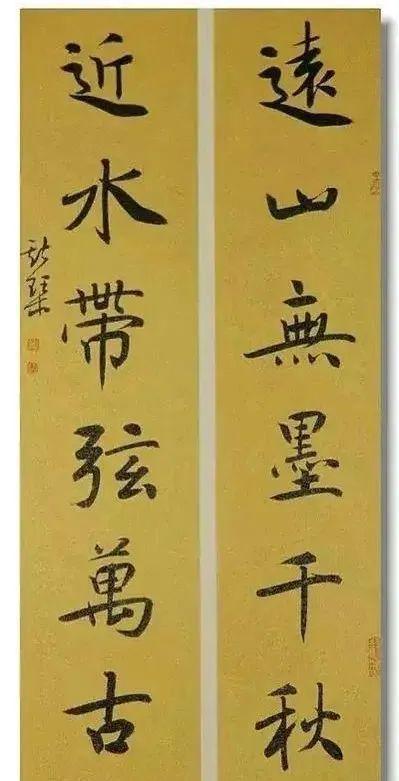 遠山無墨千秋
近水帶弦萬古